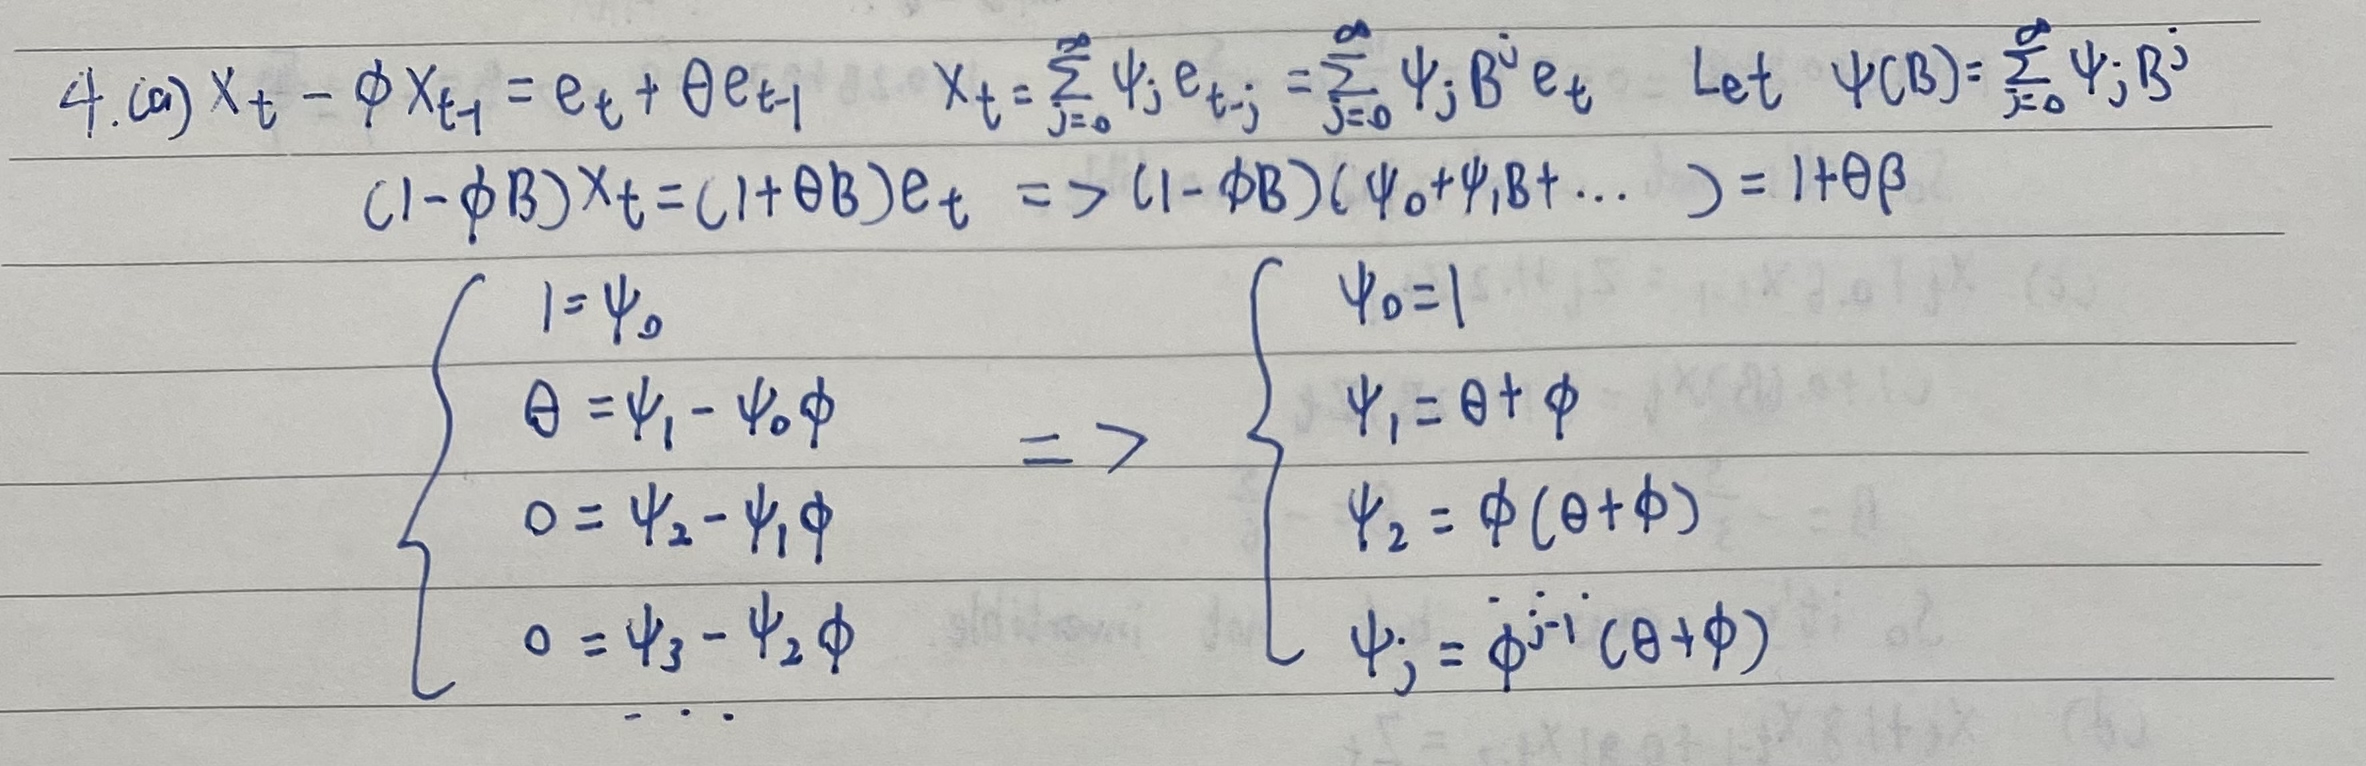 4.(a) X_t - φX_{t-1} = e_t + θe_{t-1}   X_t = ∑_{j=0}^{∞} ψ_j e_{t-j} = ∑_{j=0}^{∞} ψ_j B^j e_t   Let ψ(B) = ∑_{j=0}^{∞} ψ_j B^j
(1-φB)X_t = (1+θB)e_t => (1-φB)(ψ_0+ψ_1B+... ) = 1+θβ
{ 1 = ψ_0   { ψ_0 = 1
θ = ψ_1 - ψ_0φ => ψ_1 = θ+φ
0 = ψ_2 - ψ_1φ   ψ_2 = φ(θ+φ)
...
0 = ψ_3 - ψ_2φ   ψ_j = φ^{j-1}(θ+φ)
...